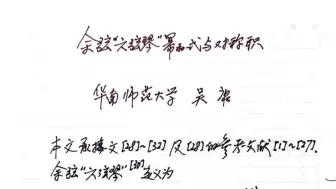 余弦“六弦琴”幂和式与对称积
华南师范大学 吴康
本文承接文[28]~[32]及[28]的参考文献[1]~[27].
余弦“六弦琴”[30]定义为